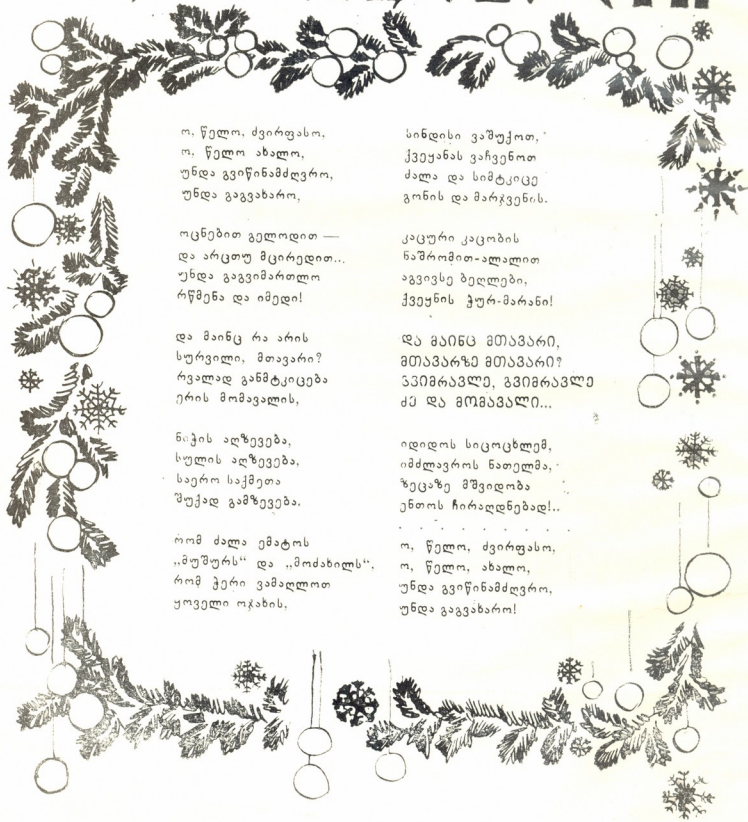 ო, წელო, ძვირფასო,
ო, წელო ახალო,
უნდა გვიწინამძღვრო,
უნდა გაგვახარო,
ოცნებით გელოდით —
და არცთუ მცირედით...
უნდა გაგვიმართლო
რწმენა და იმედი!
და მაინც რა არის
სურვილი, მთავარი?
რვალად განმტკიცება
ერის მომავალის,
ნიჭის აღზევება,
სულის აღზევება,
საერო საქმეთა
შუქად გამზევება.
რომ ძალა ემატოს
„მუშურს“ და „მოძახილს“,
რომ ჭერი ვამაღლოთ
ყოველი ოჯახის,
სინდისი ვაშუქოთ,
ქვეყანას ვაჩვენოთ
ძალა და სიმტკიცე
გონის და მარჯვენის.
კაცური კაცობის
ნაშრომით-ალალით
აგვივსე ბეღლები,
ქვეყნის ჭურ-მარანი!
და მაინც მთავარი,
მთავარზე მთავარი?
გვიმრავლე, გვიმრავლე
ძე და მომავალი...
იდიდოს სიცოცხლემ,
იმძლავროს ნათელმა,
ზეცაზე მშვიდობა
ენთოს ჩირაღდნებად!..
. . . . . . . . . .
ო, წელო, ძვირფასო,
ო, წელო, ახალო,
უნდა გვიწინამძღვრო,
უნდა გაგვახარო!